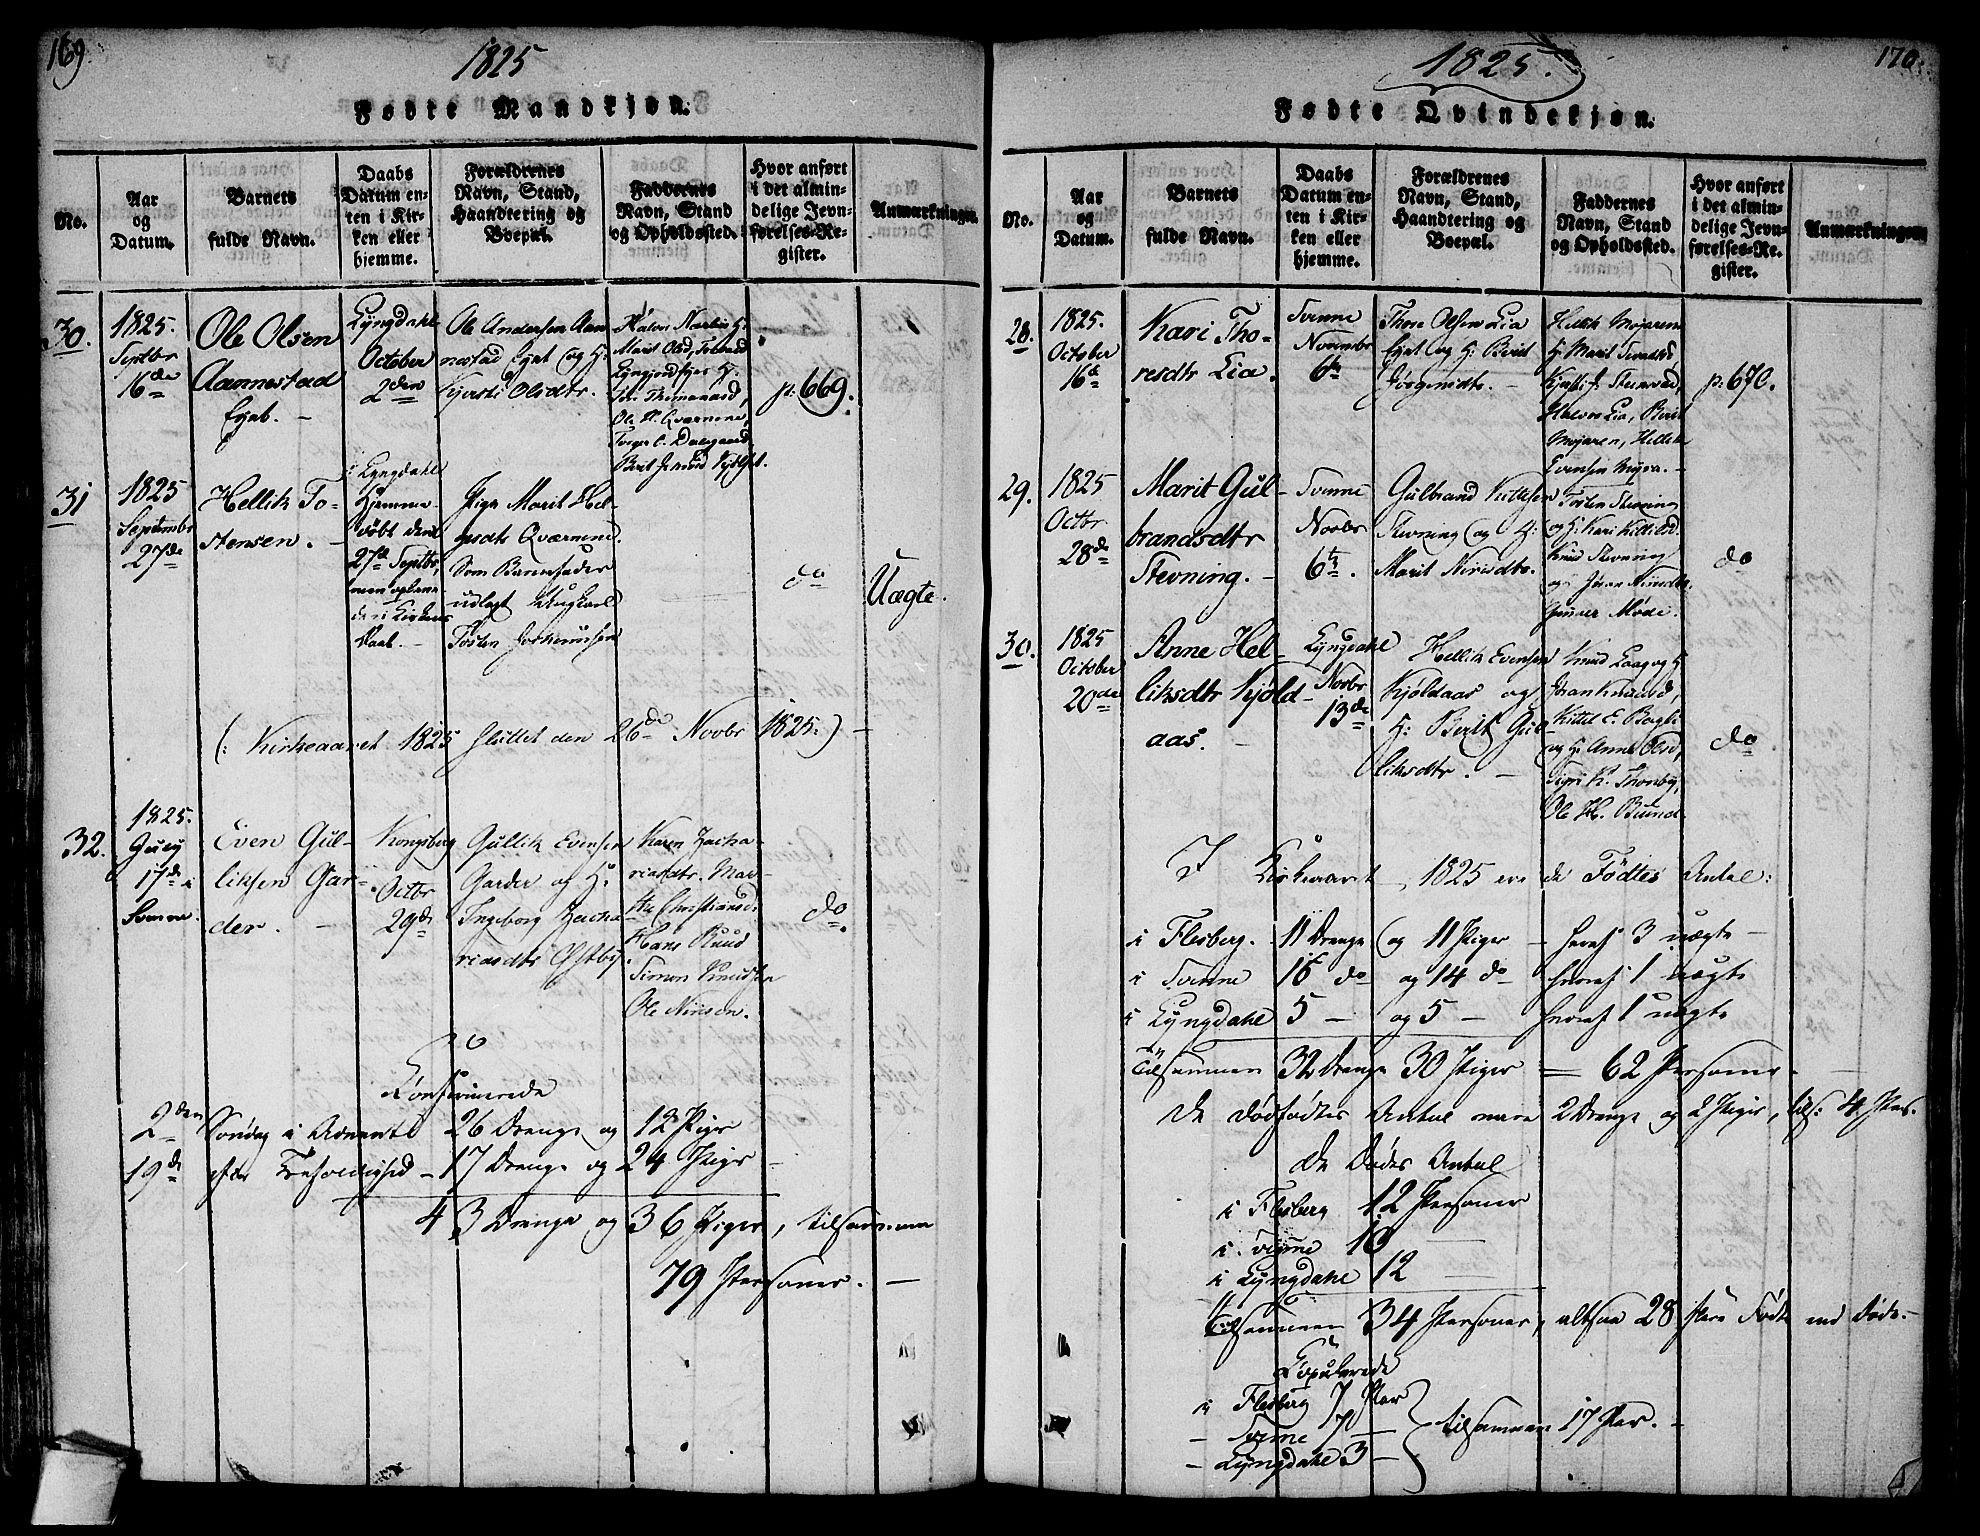 169.
1825
Fødte Mandkjøn.
No.
Aar
og
Datum.
Barnets
fulde Navn.
Daabs
Datum en-
ten i Kir-
ken eller
hjemme.
Forældrenes
Navn, Stand,
Haandtering og
Boepæl.
Faddernes
Navn, Stand
og Opholdssted.
Hvor anført
i det almin-
delige Jevn-
førelses-Re-
gister.
Anmærkninger.
30.
1825.
Septbr
16de
Ole Olsen
Aannestad
Eget. -
Lyngdahl
October
2den
Ole Andersen Aan
nestad Eget og H:
Kjersti Olsdtr.
Marit Olsd,
Ole H. Qværnene,
p: 669.
31
1825
Septembr
27de
Hellik To-
stensen. -
i Lyngdahl
Hjemme-
døbt den
27de Septbr,
Daab. -
Pige Marit Hel-
gesdtr Qværnene.
Som Barnefader
udlagt Ungkarl
Tosten
do
Uægte.
(: Kirkeaaret 1825 sluttet den 26de Novbr 1825:) -
32.
1825.
Juny
17de i
Svenne.
Even Gul-
liksen Gar-
der. -
Kongsberg
Octbr
29de
Gullik Evensen
Garder og H:
Ingeborg Zacha-
riasdtr Østby.
Karen Zacha-
riasdtr. Mar-
the Christiansd:
Hans Ruud
Simen Knudsen
Ole Nirisen.
do.
Confirmerede
2den Søndag i Advente 26 Drenge og 12 Piger
19de efter Trefoldighed - 17 Drenge og 24 Piger -
43 Drenge og 36 Piger, tilsammen
79 Personer. -
170.
1825.
Fødte Qvindekjøn.
No.
Aar
og
Datum.
Barnets
fulde Navn.
Daabs
Datum en-
ten i Kir-
ken eller
hjemme.
Forældrenes
Navn, Stand,
Haandtering og
Boepæl.
Faddernes
Navn, Stand
og Opholdssted.
Hvor anført
i det almin-
delige Jevn-
førelses-Re-
gister.
Anmærkninger
28.
1825.
October
16de
Kari Tho-
resdtr Lia.
Svenne
Novembr
6te
Thore Olsen Lia
Eget og H: Berit
Jørgensdtr. -
Hellik Møjaren
H: Marit
Halvor Lia, Berit
Møjaren, Hellik
Evensen Myra. -
p: 670.
29.
1825
Octbr
28de
Marit Gul-
brandsdtr
Stevning. -
Svenne
Novbr
6te.
Gulbrand
Stevning og H:
Marit Nirisdtr.
Tosten Stevning
og H: Kari
Knud Stevning
og
Gunner Møde.
do
30.
1825
October
20de
Anne Hel-
liksdtr Kjøld-
aas. -
Lyngdahl
Novbr
13de
Hellik Evensen
Kjøldaas og
H: Berit Gul-
liksdtr. -
Knud Laag og H:
Kittil E. Bagli
og H: Anne Olsd,
Sigri K. Thorsby,
Ole H. Buind.
do
I Kirkeaaret 1825 ere de Fødtes Antal:
i Flesberg. 11 Drenge og 11 Piger - hvoraf 3 uægte -
i Svenne 16 do og 14 do - hvoraf 1 uægte
i Lyngdahl 5 - og 5 - hvoraf 1 uægte
Tilsammen 32 Drenge 30 Piger = 62 Personer -
De dødfødtes Antal vare 2 Drenge og 2 Piger, tils: 4 Pers.
De Dødes Antal
i Flesberg 12 Personer
i Svenne 10
i Lyngdahl 12
Tilsammen 34 Personer, altsaa 28 flere Fødte end Døde. -
Copulerede
i Flesberg 7 Par
- Svenne 7 -
- Lyngdahl 3 -
tilsammen 17 Par. -